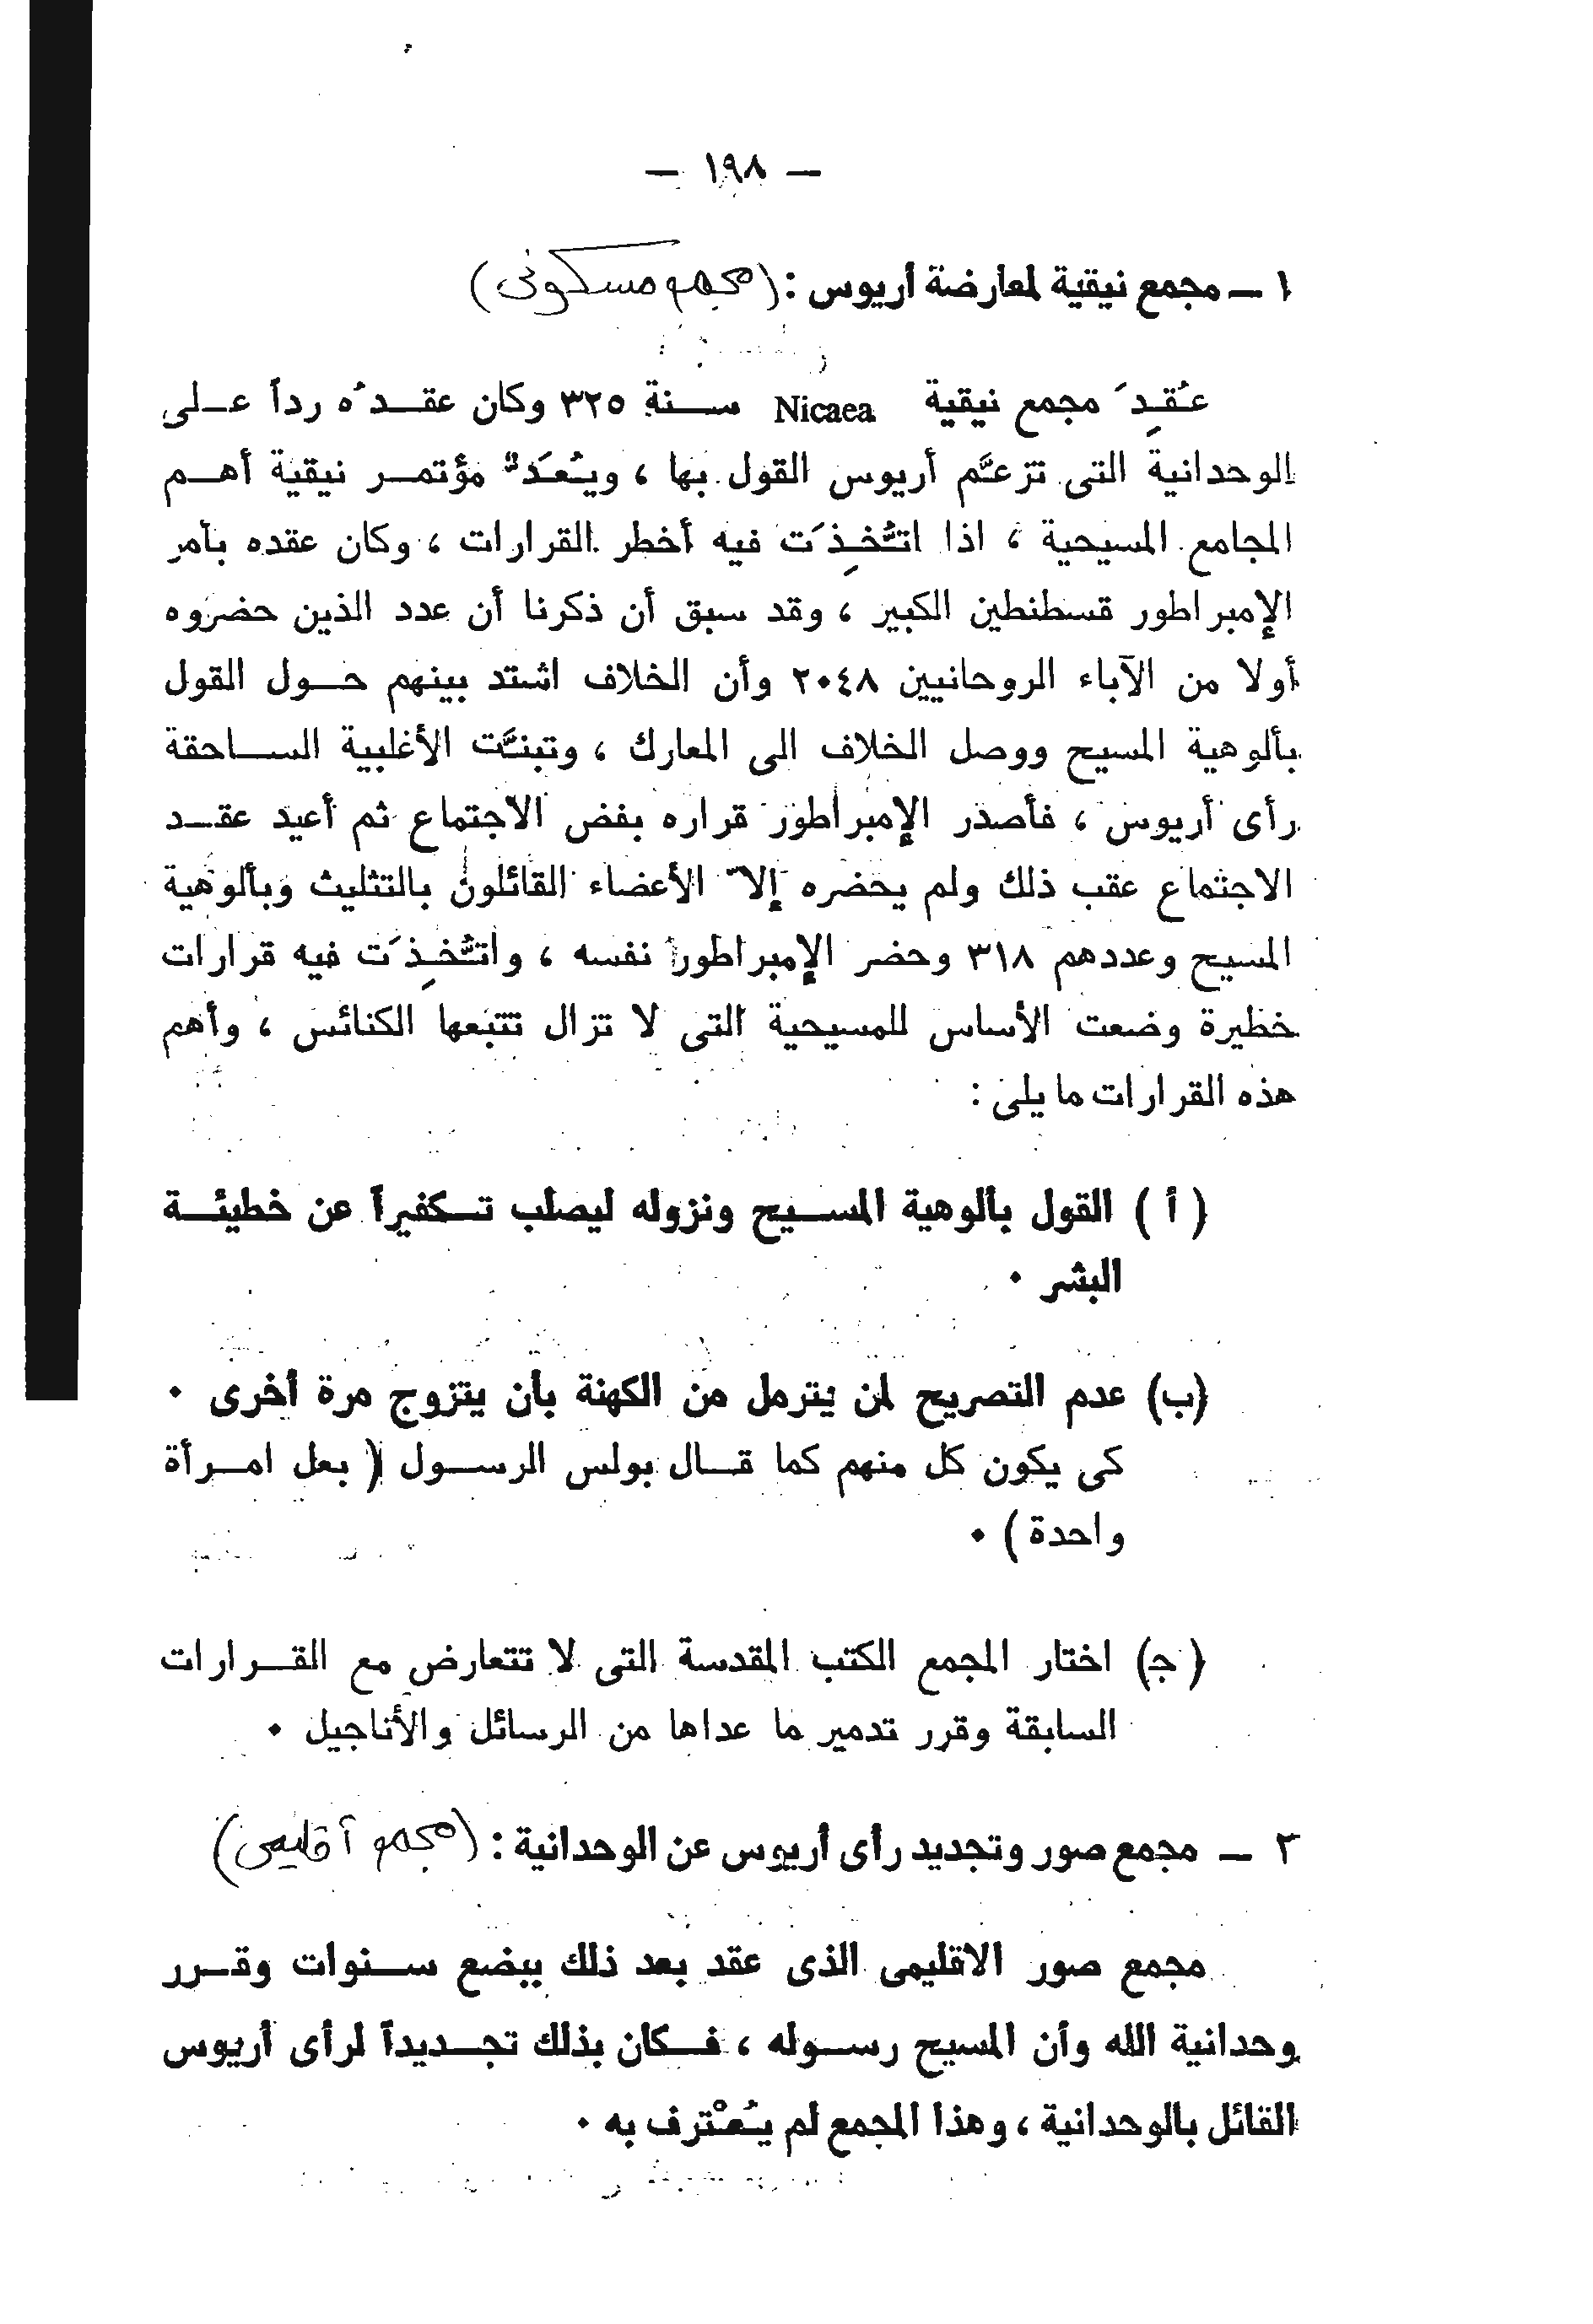 — ١٩٨ —
١ — مجمع نيقية لمعارضة أريوس : (مجمع مسكونى)
عُقِدَ مجمع نيقية Nicaea سنة ٣٢٥ وكان عقدُه رداً على
الوحدانية التى تزعَّم أريوس القول بها ، ويُعَدُّ مؤتمر نيقية أهم
المجامع المسيحية ، اذا اتُّخِذَت فيه أخطر القرارات ، وكان عقده بأمر
الإمبراطور قسطنطين الكبير ، وقد سبق أن ذكرنا أن عدد الذين حضروه
أولا من الآباء الروحانيين ٢٠٤٨ وأن الخلاف اشتد بينهم حول القول
بألوهية المسيح ووصل الخلاف الى المعارك ، وتبنَّت الأغلبية الساحقة
رأى أريوس ، فأصدر الإمبراطور قراره بفض الاجتماع ثم أعيد عقد
الاجتماع عقب ذلك ولم يحضره إلاّ الأعضاء القائلون بالتثليث وبألوهية
المسيح وعددهم ٣١٨ وحضر الإمبراطور نفسه ، واتُّخِذَت فيه قرارات
خطيرة وضعت الأساس للمسيحية التى لا تزال تتبعها الكنائس ، وأهم
هذه القرارات ما يلى :
( أ ) القول بألوهية المسيح ونزوله ليصلب تكفيراً عن خطيئة
البشر ٠
(ب) عدم التصريح لمن يترمل من الكهنة بأن يتزوج مرة أخرى ٠
كى يكون كل منهم كما قال بولس الرسول ( بعل امرأة
واحدة ) ٠
( جـ) اختار المجمع الكتب المقدسة التى لا تتعارض مع القرارات
السابقة وقرر تدمير ما عداها من الرسائل والأناجيل ٠
٢ — مجمع صور وتجديد رأى أريوس عن الوحدانية : (مجمع أقليمى)
مجمع صور الاقليمى الذى عقد بعد ذلك ببضع سنوات وقرر
وحدانية الله وأن المسيح رسوله ، فكان بذلك تجديداً لرأى أريوس
القائل بالوحدانية ، وهذا المجمع لم يُعْترف به ٠